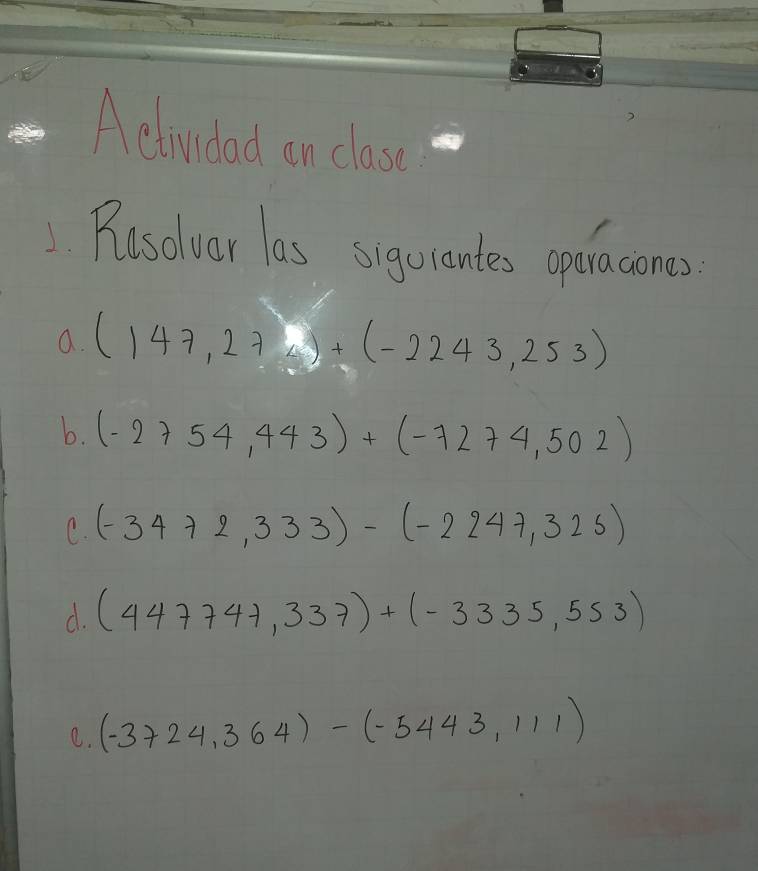 Actividad en clase:
1. Resolver las siguientes operaciones:
a. (147,272) + (-2243,253)
b. (-2754,443) + (-7274,502)
c. (-3472,333) - (-2247,325)
d. (447747,337) + (-3335,553)
e. (-3724,364) - (-5443,111)